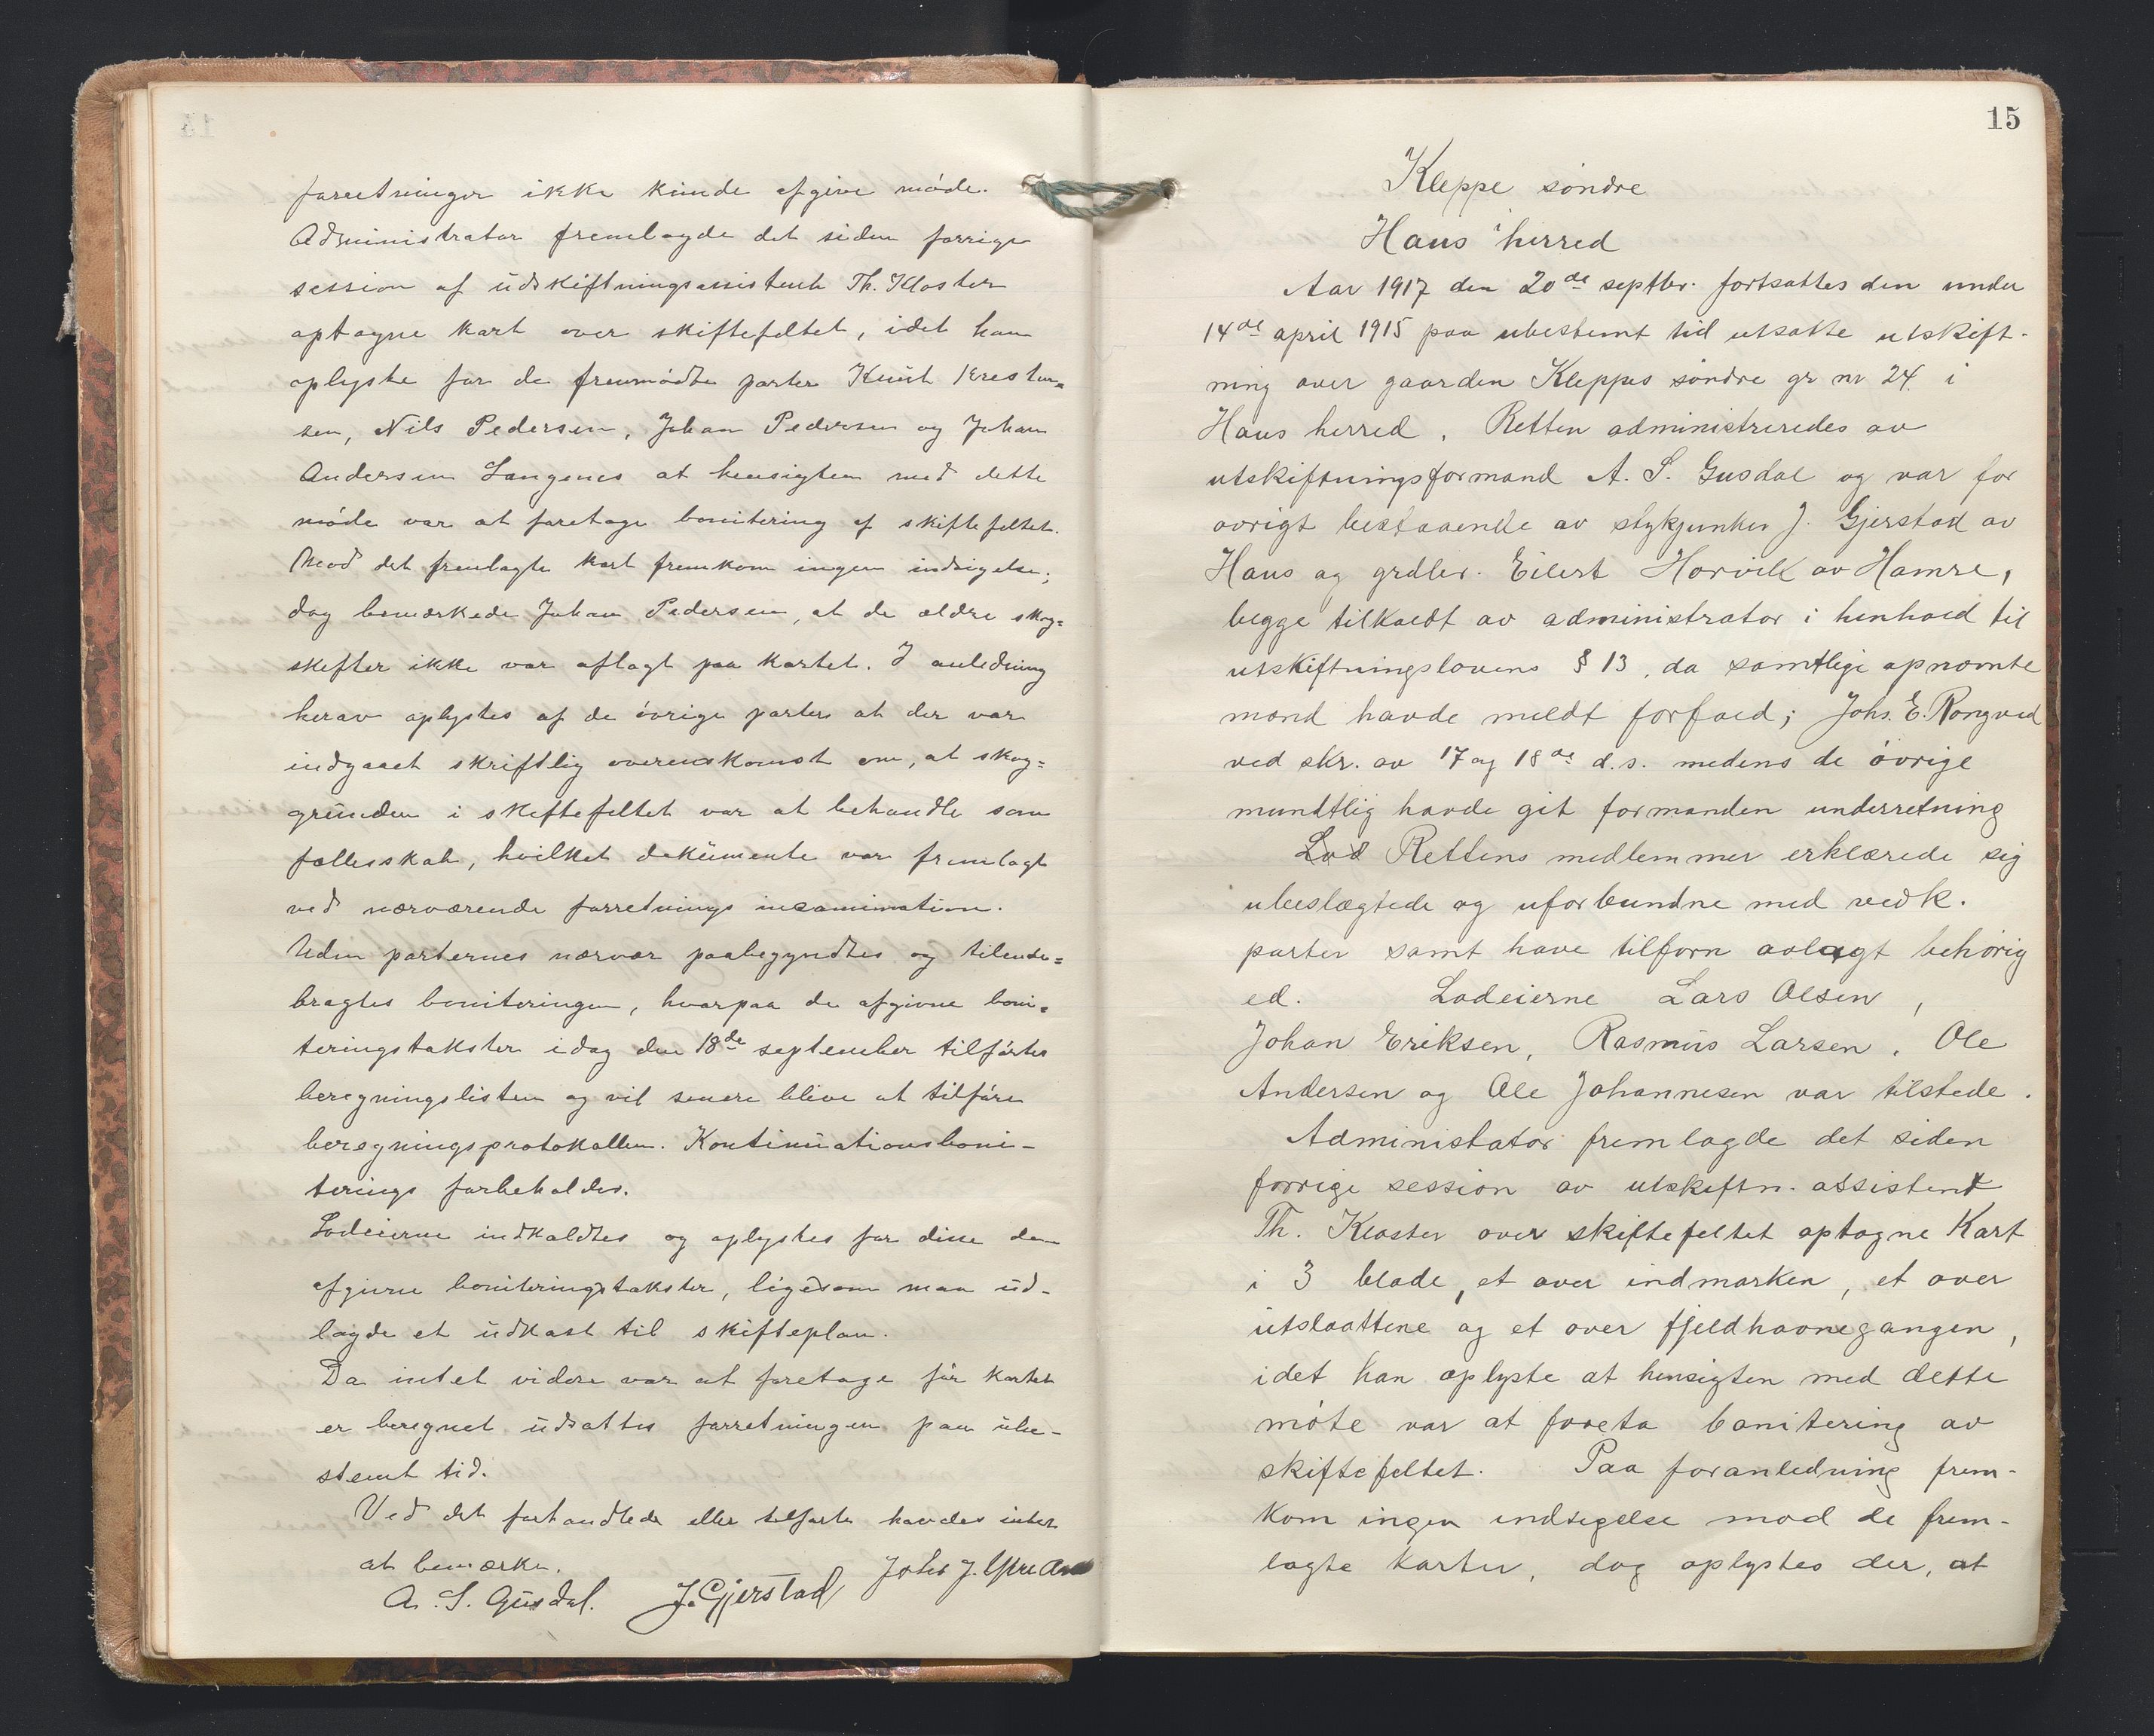 forretninger ikke kunde afgive møde.
Administrator fremlagde det siden forrige
session af udskiftningsassistent Th. Kloster
optagne kart over skiftefeltet, idet han
oplyste for de fremmødte parter Knut Kresten=
sen, Nils Pedersen, Johan Pedersen og Johan
Andersen Langenes at hensigten med dette
møde var at foretage bonitering af skiftefeltet.
Mod det fremlagte kart fremkom ingen indsigelse;
dog bemærkede Johan Pedersen, at de ældre skog=
skifter ikke var aflagt paa kartet. I anledning
herav oplystes af de øvrige parter at der var
indgaaet skriftlig overenskomst om, at skog=
grunden i skiftefeltet var at behandle som
fællesskab, hvilket dokument var fremlagt
ved nærværende forretnings incamination.
Uden parternes nærvær paabegyndtes og tilende=
bragtes boniteringen, hvorpaa de afgivne boni=
teringstakster idag den 18de september tilførtes
beregningslisten og vil senere blive at tilføre
beregningsprotokollen. Kontinuationsboni-
terings forbeholdes.
Lodeierne indkaldtes og oplystes for disse de
afgivne boniteringstakster, ligesom man ud-
lagde et udkast til skifteplan.
Da intet videre var at foretage før kartet
er beregnet udsattes forretningen paa ube-
stemt tid.
Ved det forhandlede eller tilførte havdes intet
at bemærke.
A. S. Gusdal. J. Gjerstad Johs J.
15
Kleppe søndre
i
Haus herred
Aar 1917 den 20de septbr. fortsattes den under
14de april 1915 paa ubestemt tid utsatte utskift-
ning over gaarden Kleppes søndre gr nr 24 i
Haus herred. Retten administreredes av
utskiftningsformand A. S. Gusdal og var for
øvrigt bestaaende av stykjunker J. Gjerstad av
Haus og grdbr. Eilert Horvik av Hamre,
begge tilkaldt av administrator i henhold til
utskiftningslovens § 13, da samtlige opnævnte
mænd havde meldt forfald; Johs. E. Rongved
ved skr. av 17 og 18de d.s. medens de øvrige
mundtlig havde git formanden underretning
Lod Rettens medlemmer erklærede sig
ubeslægtede og uforbundne med vedk.
parter samt have tilforn avlagt behørig
ed. Lodeierne Lars Olsen,
Johan Eriksen, Rasmus Larsen, Ole
Andersen og Ole Johannesen var tilstede.
Administator fremlagde det siden
forrige session av utskiftn. assistent
Th. Kloster over skiftefeltet optagne Kart
i 3 blade, et over indmarken, et over
utslaattene og et over fjeldhavnegangen,
idet han oplyste at hensigten med dette
møte var at foreta bonitering av
skiftefeltet. Paa foranledning frem-
kom ingen indsigelse mod de frem-
lagte karter, dog oplystes der, at